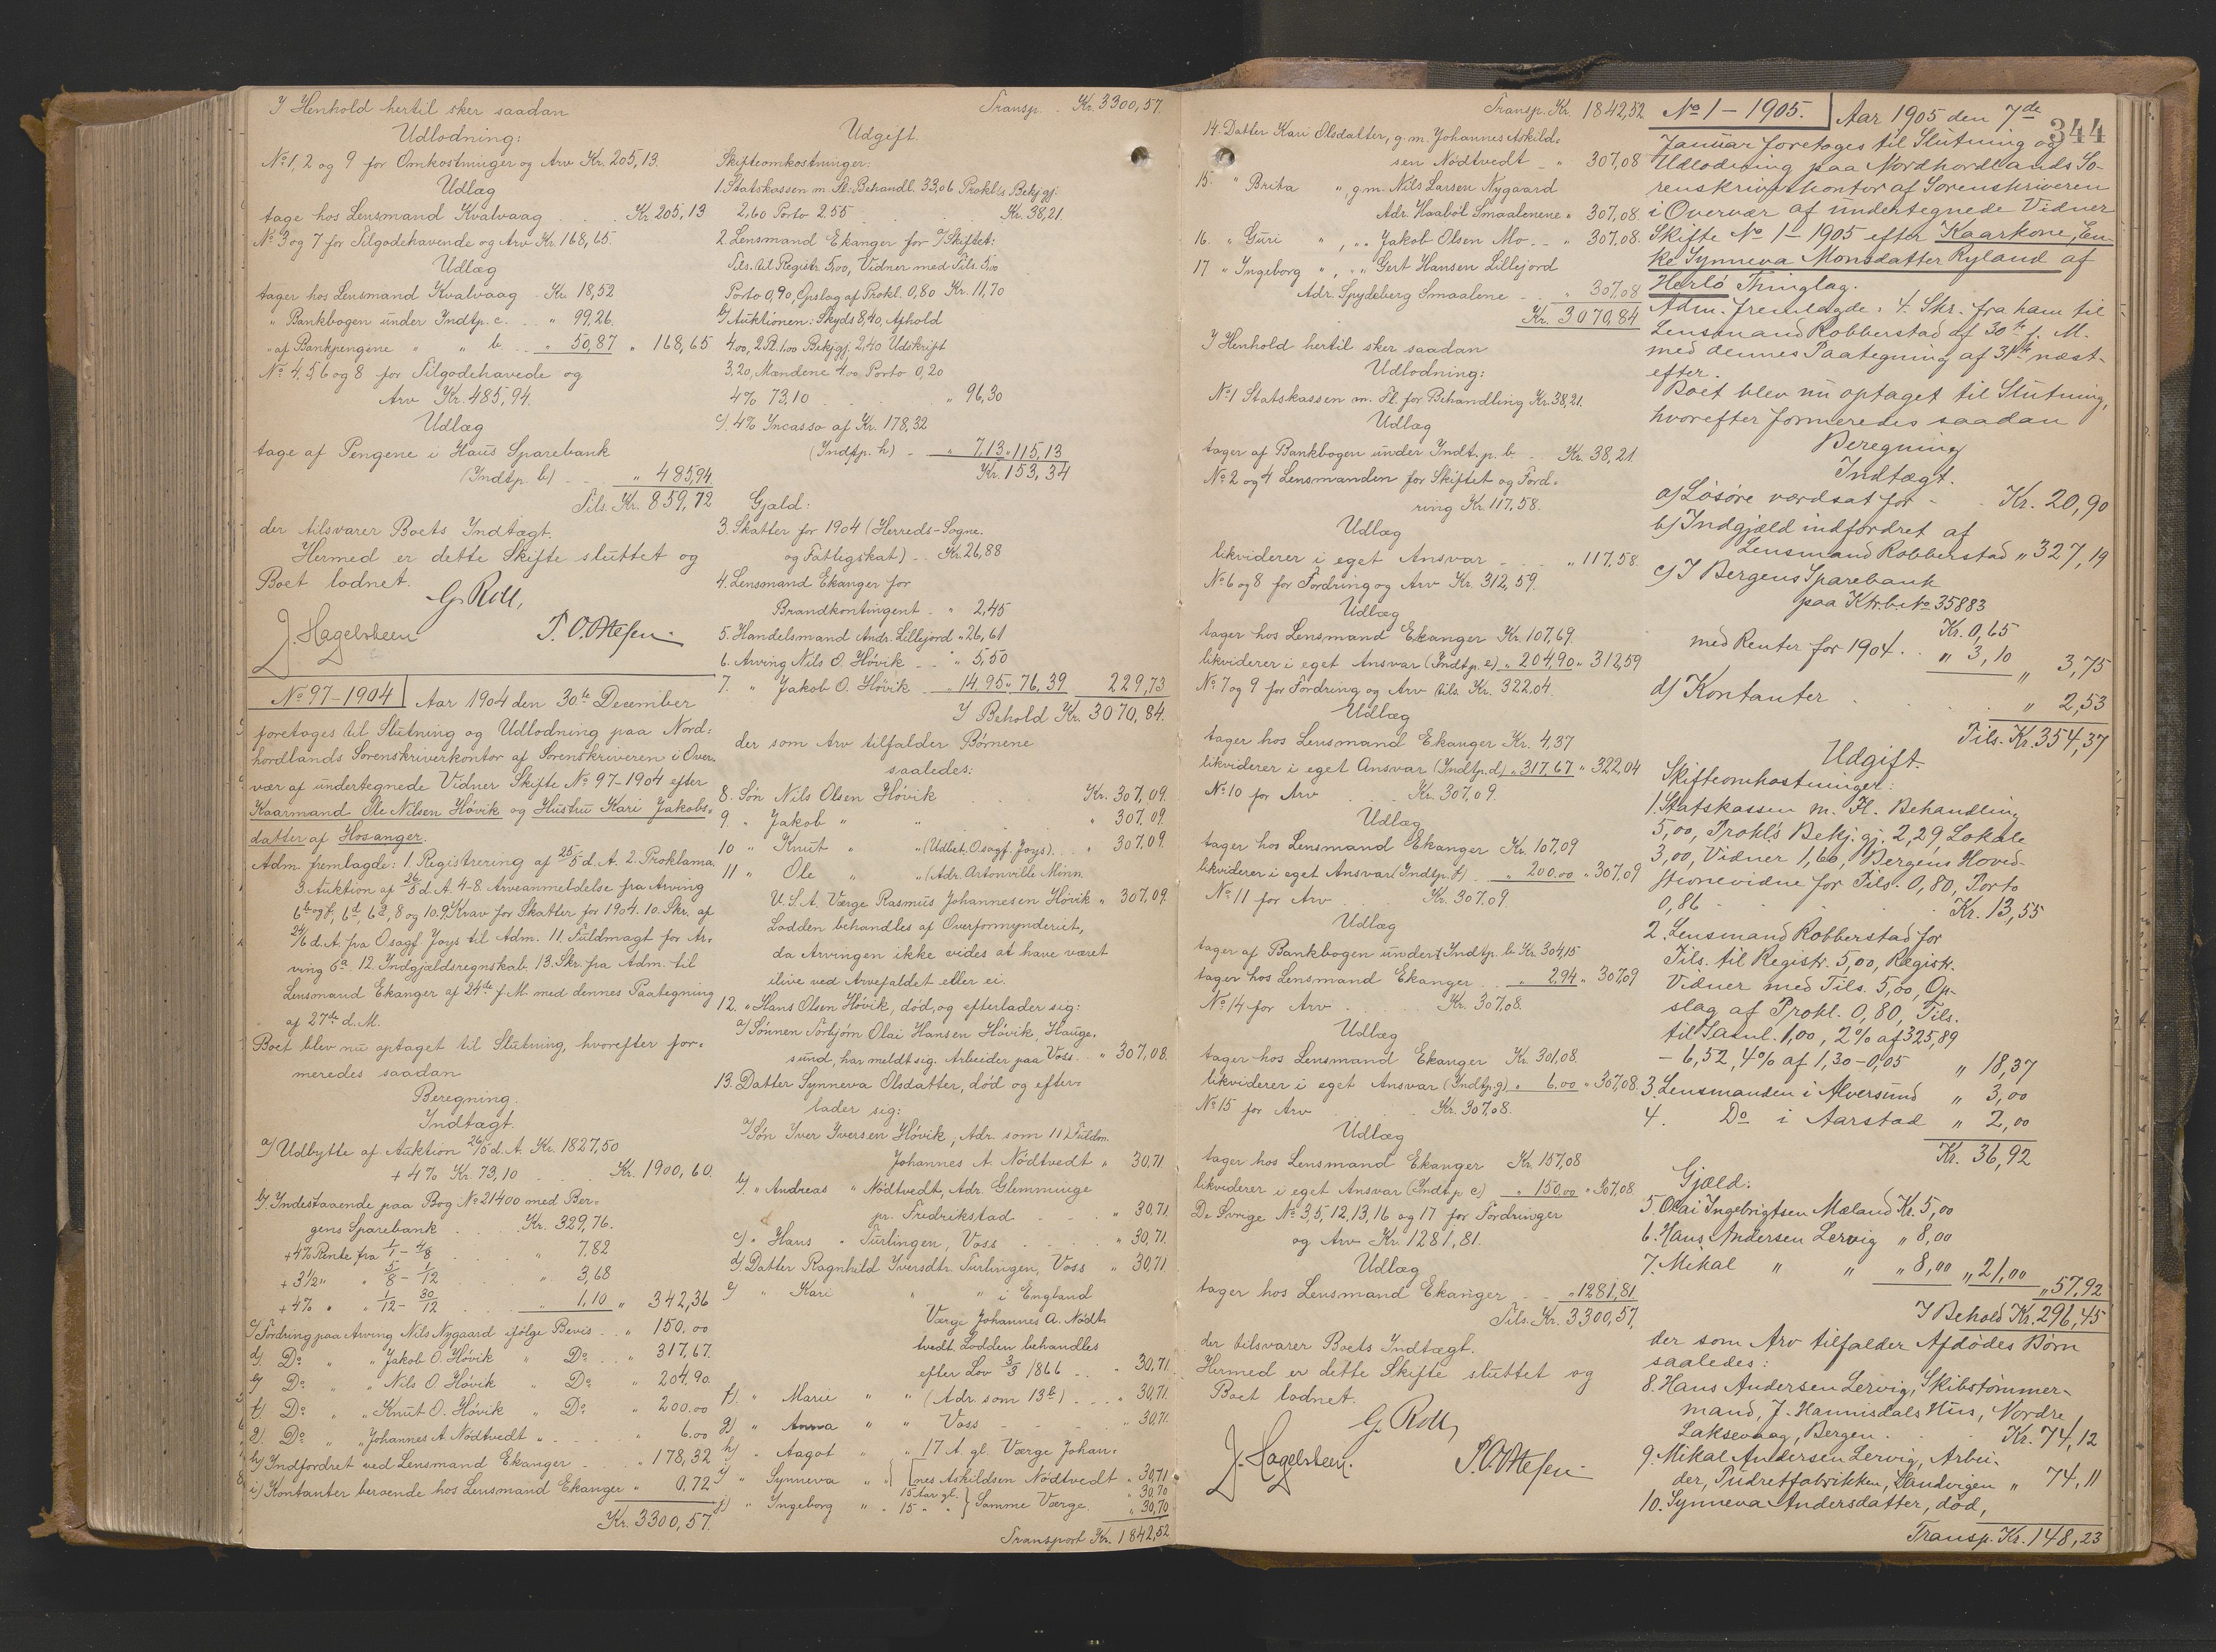 I Henhold hertil sker saadan
Udlodning:
No 1, 2 og 9 for Omkostninger og Arv Kr. 205,13.
Udlæg
tage hos Lensmand Kvalvaag . . . Kr. 205,13
No 3 og 7 for Tilgodehavende og Arv Kr. 168,65.
Udlæg
tager hos Lensmand Kvalvaag Kr. 18,52
" Bankbogen under Indtp. c. . . " 99,26.
" af Bankpengene " " b . . " 50,87 " 168,65
No 4, 5, 6 og 8 for Tilgodehavede og
Arv Kr. 485,94.
Udlæg
tage af Pengene i Haus Sparebank
(Indtp. b) . . " 485,94.
Tils. Kr. 859,72
der tilsvarer Boets Indtægt.
Hermed er dette Skifte sluttet og
Boet lodnet.
G. Roll,
J. Hagelsteen P. O. Ottesen.
No 97-1904 Aar 1904 den 30te December
foretages til Slutning og Udlodning paa Nord=
hordlands Sorenskriverkontor af Sorenskriveren i Over.
vær af undertegnede Vidner Skifte No 97-1904 efter
Kaarmand Ole Nilsen Hövik og Hustru Kari Jakobs=
datter af Hosanger.
Adm. fremlagde: 1. Registrering af 25/5 d. A. 2. Proklama
3. Auktion af 26/5 d. A. 4-8. Arveanmeldelse fra Arving
6b og f, 6d, 8 og 10. 9. Krav for Skatter for 1904. 10. Skr. af
24/6 d. A. fra O.sagf. Joys til Adm. 11. Fuldmagt for Ar=
ving 6a. 12. Indgjældsregnskab. 13. Skr. fra Adm. til
Lensmand Ekanger af 24de f. M. med dennes Paategning
af 27de d. M.
Boet blev nu optaget til Slutning, hvorefter for=
meredes saadan
Beregning.
Indtægt.
a) Udbytte af Auktion 26/5 d. A. Kr. 1827,50
+ 4% Kr. 73,10 . . Kr. 1900,60.
b). Indestaaende paa Bog No 21400 med Ber=
gens Sparebank . . . Kr. 329,76.
+ 4% Rente fra 1/1 - 4/8 . . " 7,82
+ 3 1/2 " " 5/8 - 1/12 . . " 3,68
+ 4% " " 1/12 - 30/12 . . " 1,10 " 342,36
c) Fordring paa Arving Nils Nygaard ifölge Bevis . . " 150.00
d). Do " " Jakob O. Hövik " Do . . " 317,67.
e) Do " " Nils O. Hövik " Do " 204,90.
f). Do " " Knut O. Hövik " Do " 200.00
g). Do " " Johannes A. Nödtvedt " . . . " 6.00
h) Indfordret ved Lensmand Ekanger . . . " 178,32
i) Kontanter beroende hos Lensmand Ekanger " 0,72
Kr. 3300,57.
Transp. . Kr. 3300,57.
Udgift.
Skifteomkostninger:
1. Statskassen m. Fl.: Behandl. 33,06 Prokl's Bekjgj.
2,60 Porto 2.55 . . . Kr. 38,21.
2. Lensmand Ekanger for a/ Skiftet:
Tils. til Registr. 5,00, Vidner med Tils. 5,00
Porto 0,90, Opslag af Prokl. 0,80 Kr. 11,70
b/ Auktionen: Skyds 8,40, Afhold
4.00, 2 Fl. 1.00 Bekjgj. 2,40 Udskrift
3,20, Mændene 4.00 Porto 0,20
4% 73,10 . . . " 96,30
c/. 4% Incasso af Kr. 178,32
(Indtp. h) . . " 7,13 " 115,13
Kr. 153,34
Gjæld:
3. Skatter for 1904 (Herreds- Sogne.
og Fattigskat) . . Kr. 26,88
4. Lensmand Ekanger for
Brandkontingent . . " 2,45
5. Handelsmand Andr. Lillejord " 26,61
6. Arving Nils O. Hövik . . . " 5,50
7. " Jakob O. Hövik . . 14.95 " 76,39 229,73
I Behold Kr. 3070,84.
der som Arv tilfalder Börnene
saaledes:
8. Sön Nils Olsen Hövik Kr. 307,09.
9 " Jakob " " " 307.09.
10 " Knut " " (Udbet. O.sagf. Joys) . . " 307,09.
11 " Ole " " (Adr. Artonville Minn.
U. S. A. Værge Rasmus Johannesen Hövik " 307,09.
Lodden behandles af Overformynderiet,
da Arvingen ikke vides at have været
ilive ved Arvefaldet eller ei.
12. " Hans Olsen Hövik, död, og efterlader sig:
a) Sönnen Torbjörn Olai Hansen Hövik, Hauge.
sund, har meldt sig. Arbeider paa Voss. . " 307,08.
13. Datter Synneva Olsdatter, död og efter=
lader sig:
a) Sön Iver Iversen Hövik, Adr. som 11) Fuldm.
Johannes A. Nödtvedt " 30,71.
b). " Andreas " Nödtvedt, Adr. Glemminge
pr. Fredrikstad . . . " 30,71.
c) " Hans " Furlingen, Voss . . . " 30,71.
d). Datter Ragnhild Iversdtr. Furlingen, Voss " 30,71
e) " Kari " " i England
Værge Johannes A. Nödt.
tvedt. Lodden behandles
efter Lov 3/3 1866 . . " 30,71.
f). " Marie " " (Adr. som 13b) . . . " 30,71.
g). " Anna " " Voss . . . " 30,71.
h) " Aagot " " 17 A. gl. Værge Johan=
i) " Synneva " " 15 Aar gl. nes Askildsen Nödtvedt " 30,71
30,70
j) " Ingeborg " " 15 " " Samme Værge. " 30,70
Transport Kr. 1842,52
Transp. Kr. 1842,52
14. Datter Kari Olsdatter, g. m. Johannes Askild=
sen Nödtvedt . . " 307,08
15. " Brita " , g m. Nils Larsen Nygaard
Adr. Haaböl Smaalenene " 307,08.
16. " Guri " , " " Jakob Olsen Mo . . " 307,08.
17 " Ingeborg " , " " Gert Hansen Lillejord
Adr. Spydeberg Smaalene . . " 307,08
Kr. 3070,84
I Henhold hertil sker saadan
Udlodning:
No 1 Statskassen m. Fl. for Behandling Kr. 38,21.
Udlæg
tager af Bankbogen under Indt. p. b . . Kr. 38,21.
No 2 og 4 Lensmanden for Skiftet og Ford=
ring Kr. 117,58.
Udlæg
likviderer i eget Ansvar . . . " 117,58.
No 6 og 8 for Fordring og Arv Kr. 312,59.
Udlæg
tager hos Lensmand Ekanger Kr. 107,69.
likviderer i eget Ansvar (Indtp. e) " 204,90 " 312,59
No 7 og 9 for Fordring og Arv tils. Kr. 322,04.
Udlæg
tager hos Lensmand Ekanger Kr. 4,37
likviderer i eget Ansvar (Indtp. d) " 317,67 " 322,04
No 10 for Arv . . Kr. 307,09.
Udlæg
tager hos Lensmand Ekanger Kr. 107,09
likviderer i eget Ansvar (Indtp. f) . . " 200.00 " 307,09
No 11 for Arv . . . Kr. 307.09.
Udlæg
tager af Bankbogen under Indtp. b. Kr. 304,15
tager hos Lensmand Ekanger . . " 2,94 " 307,09
No 14 for Arv . . . Kr. 307,08.
Udlæg
tager hos Lensmand Ekanger Kr. 301,08.
likviderer i eget Ansvar (Indtp. g) " 6.00 " 307,08.
No 15 for Arv . . . Kr. 307,08.
Udlæg
tager hos Lensmand Ekanger Kr. 157,08
likviderer i eget Ansvar (Indtp c) " 150.00 " 307,08.
De övrige No 3, 5, 12, 13, 16 og 17 for Fordringer
og Arv Kr. 1281,81.
Udlæg
tager hos Lensmand Ekanger . . " 1281,81
Tils. Kr. 3300,57,
der tilsvarer Boets Indtægt.
Hermed er dette Skifte sluttet og
Boet lodnet.
G. Roll,
J. Hagelsteen. P. O. Ottesen
344
No 1 - 1905. Aar 1905 den 7de
Januar foretages til Slutning og
Udlodning paa Nordhordlands So-
renskriverkontor af Sorenskriveren
i Overvær af undertegnede Vidner
Skifte No 1 - 1905 efter Kaarkone, En-
ke Synneva Monsdatter Ryland af
Herlö Thinglag.
Adm. fremlagde: 4. Skr. fra ham til
Lensmand Robberstad af 30te f. M.
med dennes Paategning af 31te næst-
efter.
Boet blev nu optaget til Slutning,
hvorefter formeredes saadan
Beregning
Indtægt.
a) Lösöre værdsat for . . Kr. 20,90
b) Indgjæld indfordret af
Lensmand Robberstad " 327,19
c) I Bergens Sparebank
paa Ktrb. No 35883
Kr. 0,65
med Renter for 1904 . . " 3,10 " 3,75
d) Kontanter . . . " 2,53
Tils. Kr. 354,37
Udgift.
Skifteomkostninger:
1. Statskassen m. Fl. Behandling
5,00, Prokl's Bekj. gj. 2,29, Lokale
3,00, Vidner 1,60, Bergens Hoved-
stionevidne for Tils. 0,80, Porto
0,86 . . . Kr. 13,55
2. Lensmand Robberstad for
Tils. til Registr. 5,00, Registr.
Vidner med Tils. 5,00, Op-
slag af Prokl. 0,80, Tils.
1,00, 2% af 325,89
- 6,52, 4% af 1,30 - 0,05 " 18,37
3. Lensmanden i Alversund " 3,00
4. Do i Aarstad " 2,00
Kr. 36,92
Gjæld:
5. Olai Ingebrigtsen Mæland Kr. 5,00
6. Hans Andersen Lervig " 8,00
7. Mikal " " " 8,00 " 21,00 " 57,92
I Behold Kr. 296,45
der som Arv tilfalder Afdödes Börn
saaledes:
8. Hans Andersen Lervig, Skibstömmer-
mand, J. Hannisdals Hus, Nordre
Laksevaag, Bergen . . Kr. 74,12
9. Mikal Andersen Lervig, Arbei-
der, Pudretfabrikken, Sandvigen " 74,11
10. Synneva Andersdatter, död,
Transp. Kr. 148,23